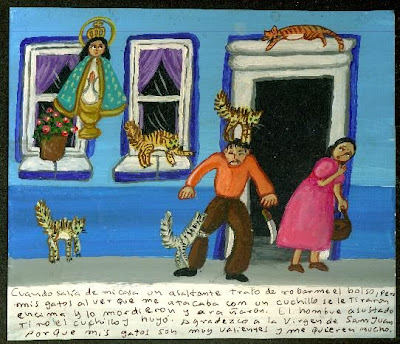 Cuando salía de mi casa un asaltante trato de robarme el bolso, pero
mis gatos al ver que me atacaba con un cuchillo se le tiraron
encima y lo mordieron y arañaron. El hombre asustado
tiro el cuchillo y huyó. Agradezco a la Virgen de San Juan
porque mis gatos son muy valientes y me quieren mucho.